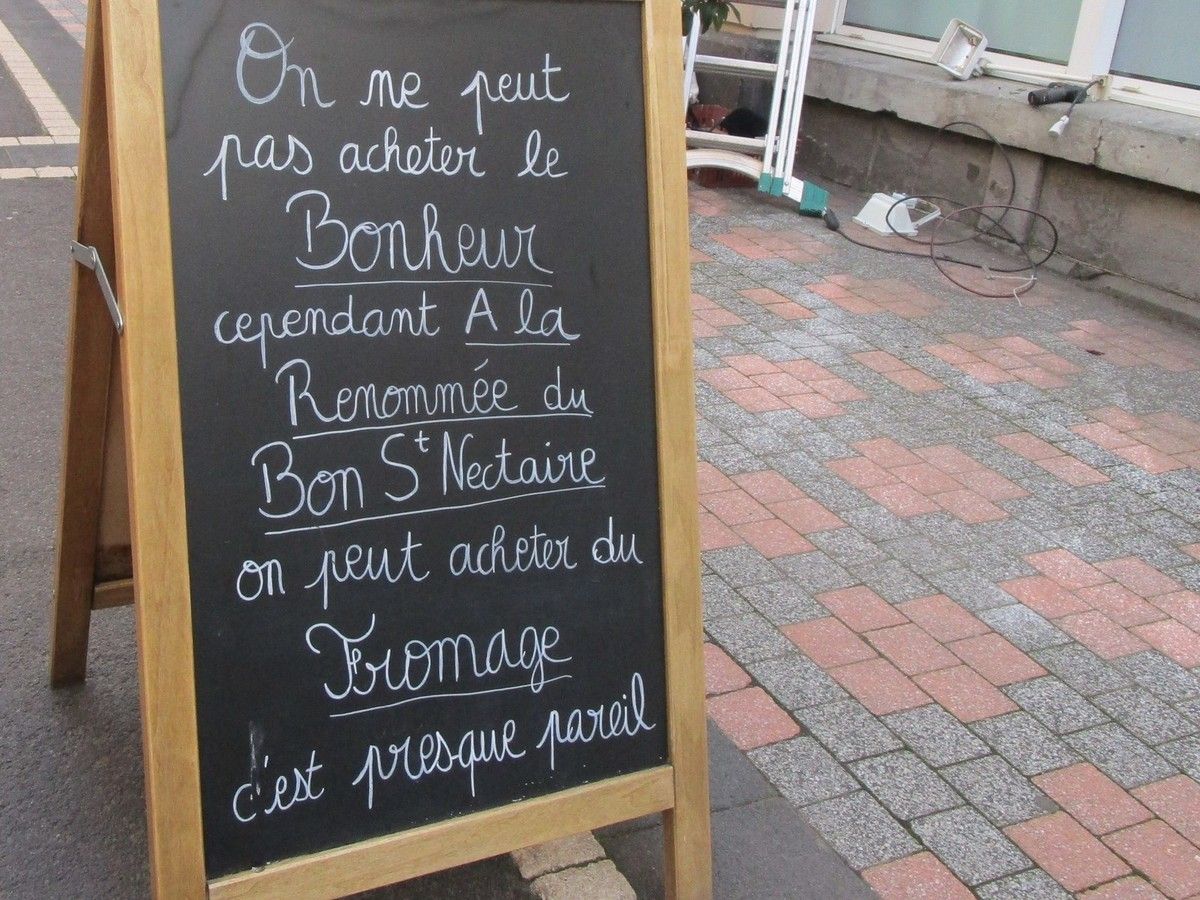 On ne peut
pas acheter le
Bonheur
cependant A la
Renommée du
Bon St Nectaire
on peut acheter du
Fromage
c'est presque pareil